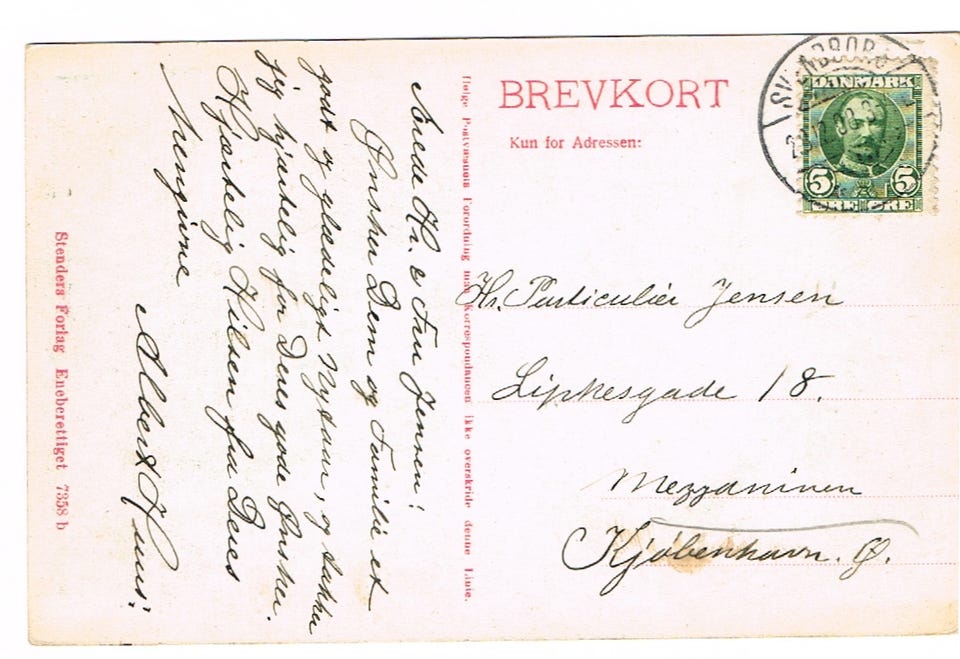 BREVKORT
Kun for Adressen:
SVENDBORG
DANMARK
5 5
ØRE ØRE
Hr. Particulier Jensen
Lipkesgade 18.
Mezzaninen
Kjøbenhavn. Ø.
Ifølge Postvæsnets Forordning maa Korrespondancen ikke overskride denne Linie.
Ærede Hr. & Fru Jensen!
Ønsker Dem og Familie et
godt og glædeligt Nytaar, og takker
jeg hjertelig for Deres gode Ønsker.
Hjærtelig Hilsen fra Deres
hengivne
Albert
Stenders Forlag Eneberettiget 7358 b